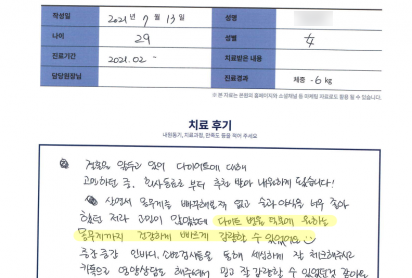 작성일 2021년 7월 13일 성명
나이 29 성별 女
진료기간 2021.02 ~ 치료받은 내용
담당원장님 진료결과 체중 -6kg
※ 본 자료는 본원의 홈페이지와 소셜채널 등 마케팅 자료로도 활용 될 수 있습니다.
치료 후기
내원동기, 치료과정, 만족도 등을 적어 주세요
결혼을 앞두고 있어 다이어트에 대해
고민하던 중, 친구 추천 받아 내원하게 되었습니다!
살면서 몸무게는 빼본적도 없고 술과 야식을 너무 좋아
하던 저라 고민이 많았는데 다이어트 병원 덕분에 원하는
몸무게까지 건강하게 빠르게 감량할 수 있었어요
중간중간 인바디, 소변검사등을 통해 세심하게 잘 체크해주시고
카톡으로 영양상담도 해주셔서 믿고 잘 감량할 수 있었던것 같아요